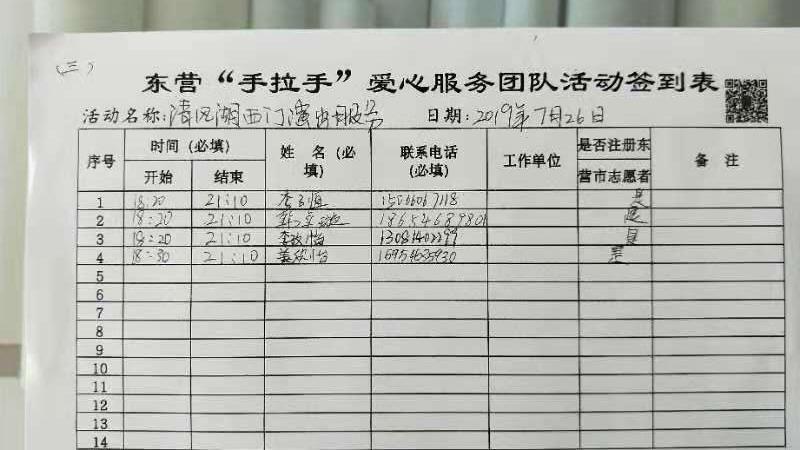 （三）
东营“手拉手”爱心服务团队活动签到表
活动名称：清风湖西门演出服务 日期：2019年7月26日
序号 时间（必填） 姓 名（必填） 联系电话（必填） 工作单位 是否注册东营市志愿者 备 注
开始 结束
1 18:20 21:10 是
2 18:20 21:10 18654689801 是
3 18:20 21:10 13081402299 是
4 18:30 21:10 是
5
6
7
8
9
10
11
12
13
14